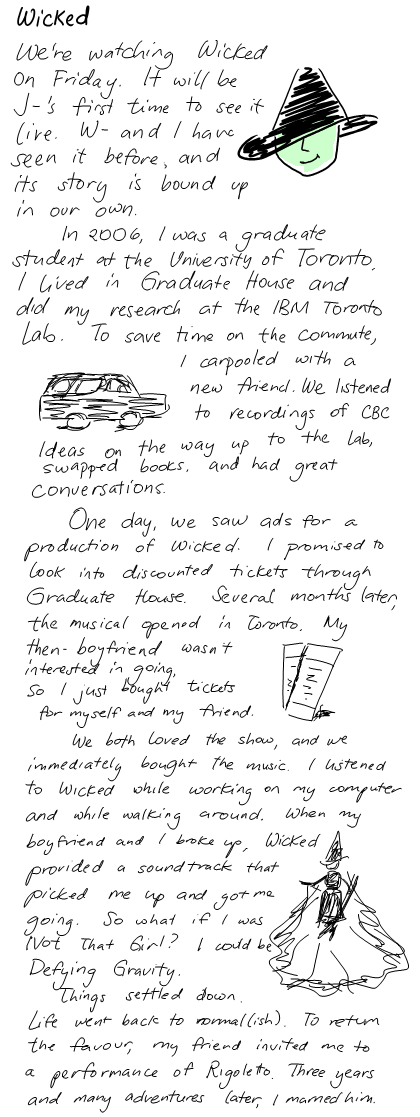 Wicked
We're watching Wicked
on Friday. It will be
J-'s first time to see it
live. W- and I have
seen it before, and
its story is bound up
in our own.
In 2006, I was a graduate
student at the University of Toronto.
I lived in Graduate House and
did my research at the IBM Toronto
Lab. To save time on the commute,
I carpooled with a
new friend. We listened
to recordings of CBC
Ideas on the way up to the lab,
swapped books, and had great
conversations.
One day, we saw ads for a
production of Wicked. I promised to
look into discounted tickets through
Graduate House. Several months later,
the musical opened in Toronto. My
then-boyfriend wasn't
interested in going,
so I just bought tickets
for myself and my friend.
We both loved the show, and we
immediately bought the music. I listened
to Wicked while working on my computer
and while walking around. When my
boyfriend and I broke up, Wicked
provided a soundtrack that
picked me up and got me
going. So what if I was
Not That Girl? I could be
Defying Gravity.
Things settled down.
Life went back to normal(ish). To return
the favour, my friend invited me to
a performance of Rigoletto. Three years
and many adventures later, I married him.